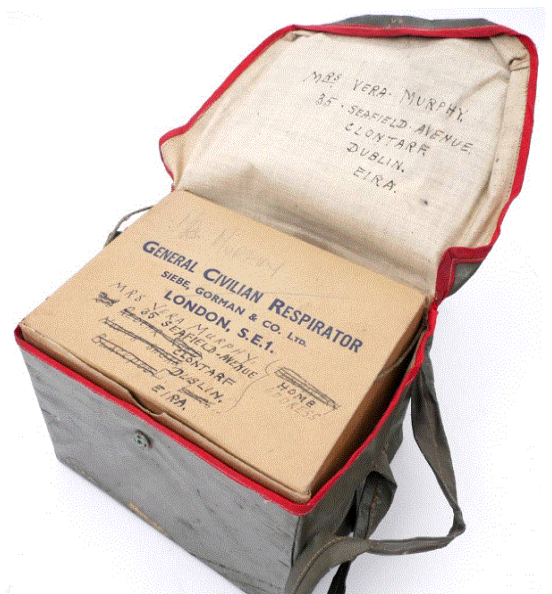 MRS VERA MURPHY.
35 · SEAFIELD · AVENUE.
CLONTARF.
DUBLIN.
EIRA.
Murphy
GENERAL CIVILIAN RESPIRATOR
SIEBE, GORMAN & CO. LTD.
LONDON, S.E.1.
MRS VERA MURPHY.
35 SEAFIELD · AVENUE
CLONTARF
DUBLIN.
EIRA.
HOME
ADDRESS